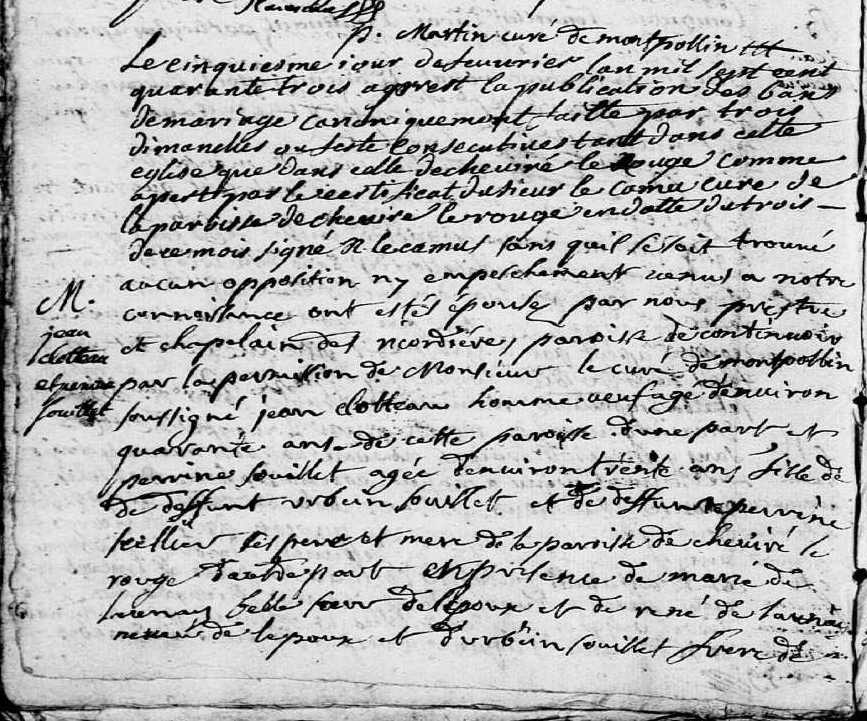 p. Martin curé de montpollin
Le cinquiesme iour de feuurier lan mil sept cent
quarante trois apprest la publication des bans
de mariage canoniquement faitte par trois
dimanches ou feste consecutiues tant dans cette
eglise que dans celle de cheuiré le Rouge comme
apert par le certificat du sieur le camu cure de
la paroisse de cheuire le rouge en datte du trois
de ce mois signé R lecamus sans quil se soit trouué
aucun opposition ny empeschement venus a notre
connoisance ont estés épousez par nous prestre
et chapelain des paroisse de continuoir
par la permission de Monsieur le curé de montpollin
soussigné jean clotteau homme veuf agé denuiron
quarante ans de cette paroisse dune part et
perrine souillet agée denuiron trente ans fille de
de deffunt urbain souillet et de deffunte perrine
tellier ses pere et mere de la paroisse de cheuiré le
rouge dautre part en presence de marie de
launay belle soeur de lepoux et de rené de launay
neueu de lepoux et durbain souillet frere de
M.
jean
clotteau
et perrine
souillet